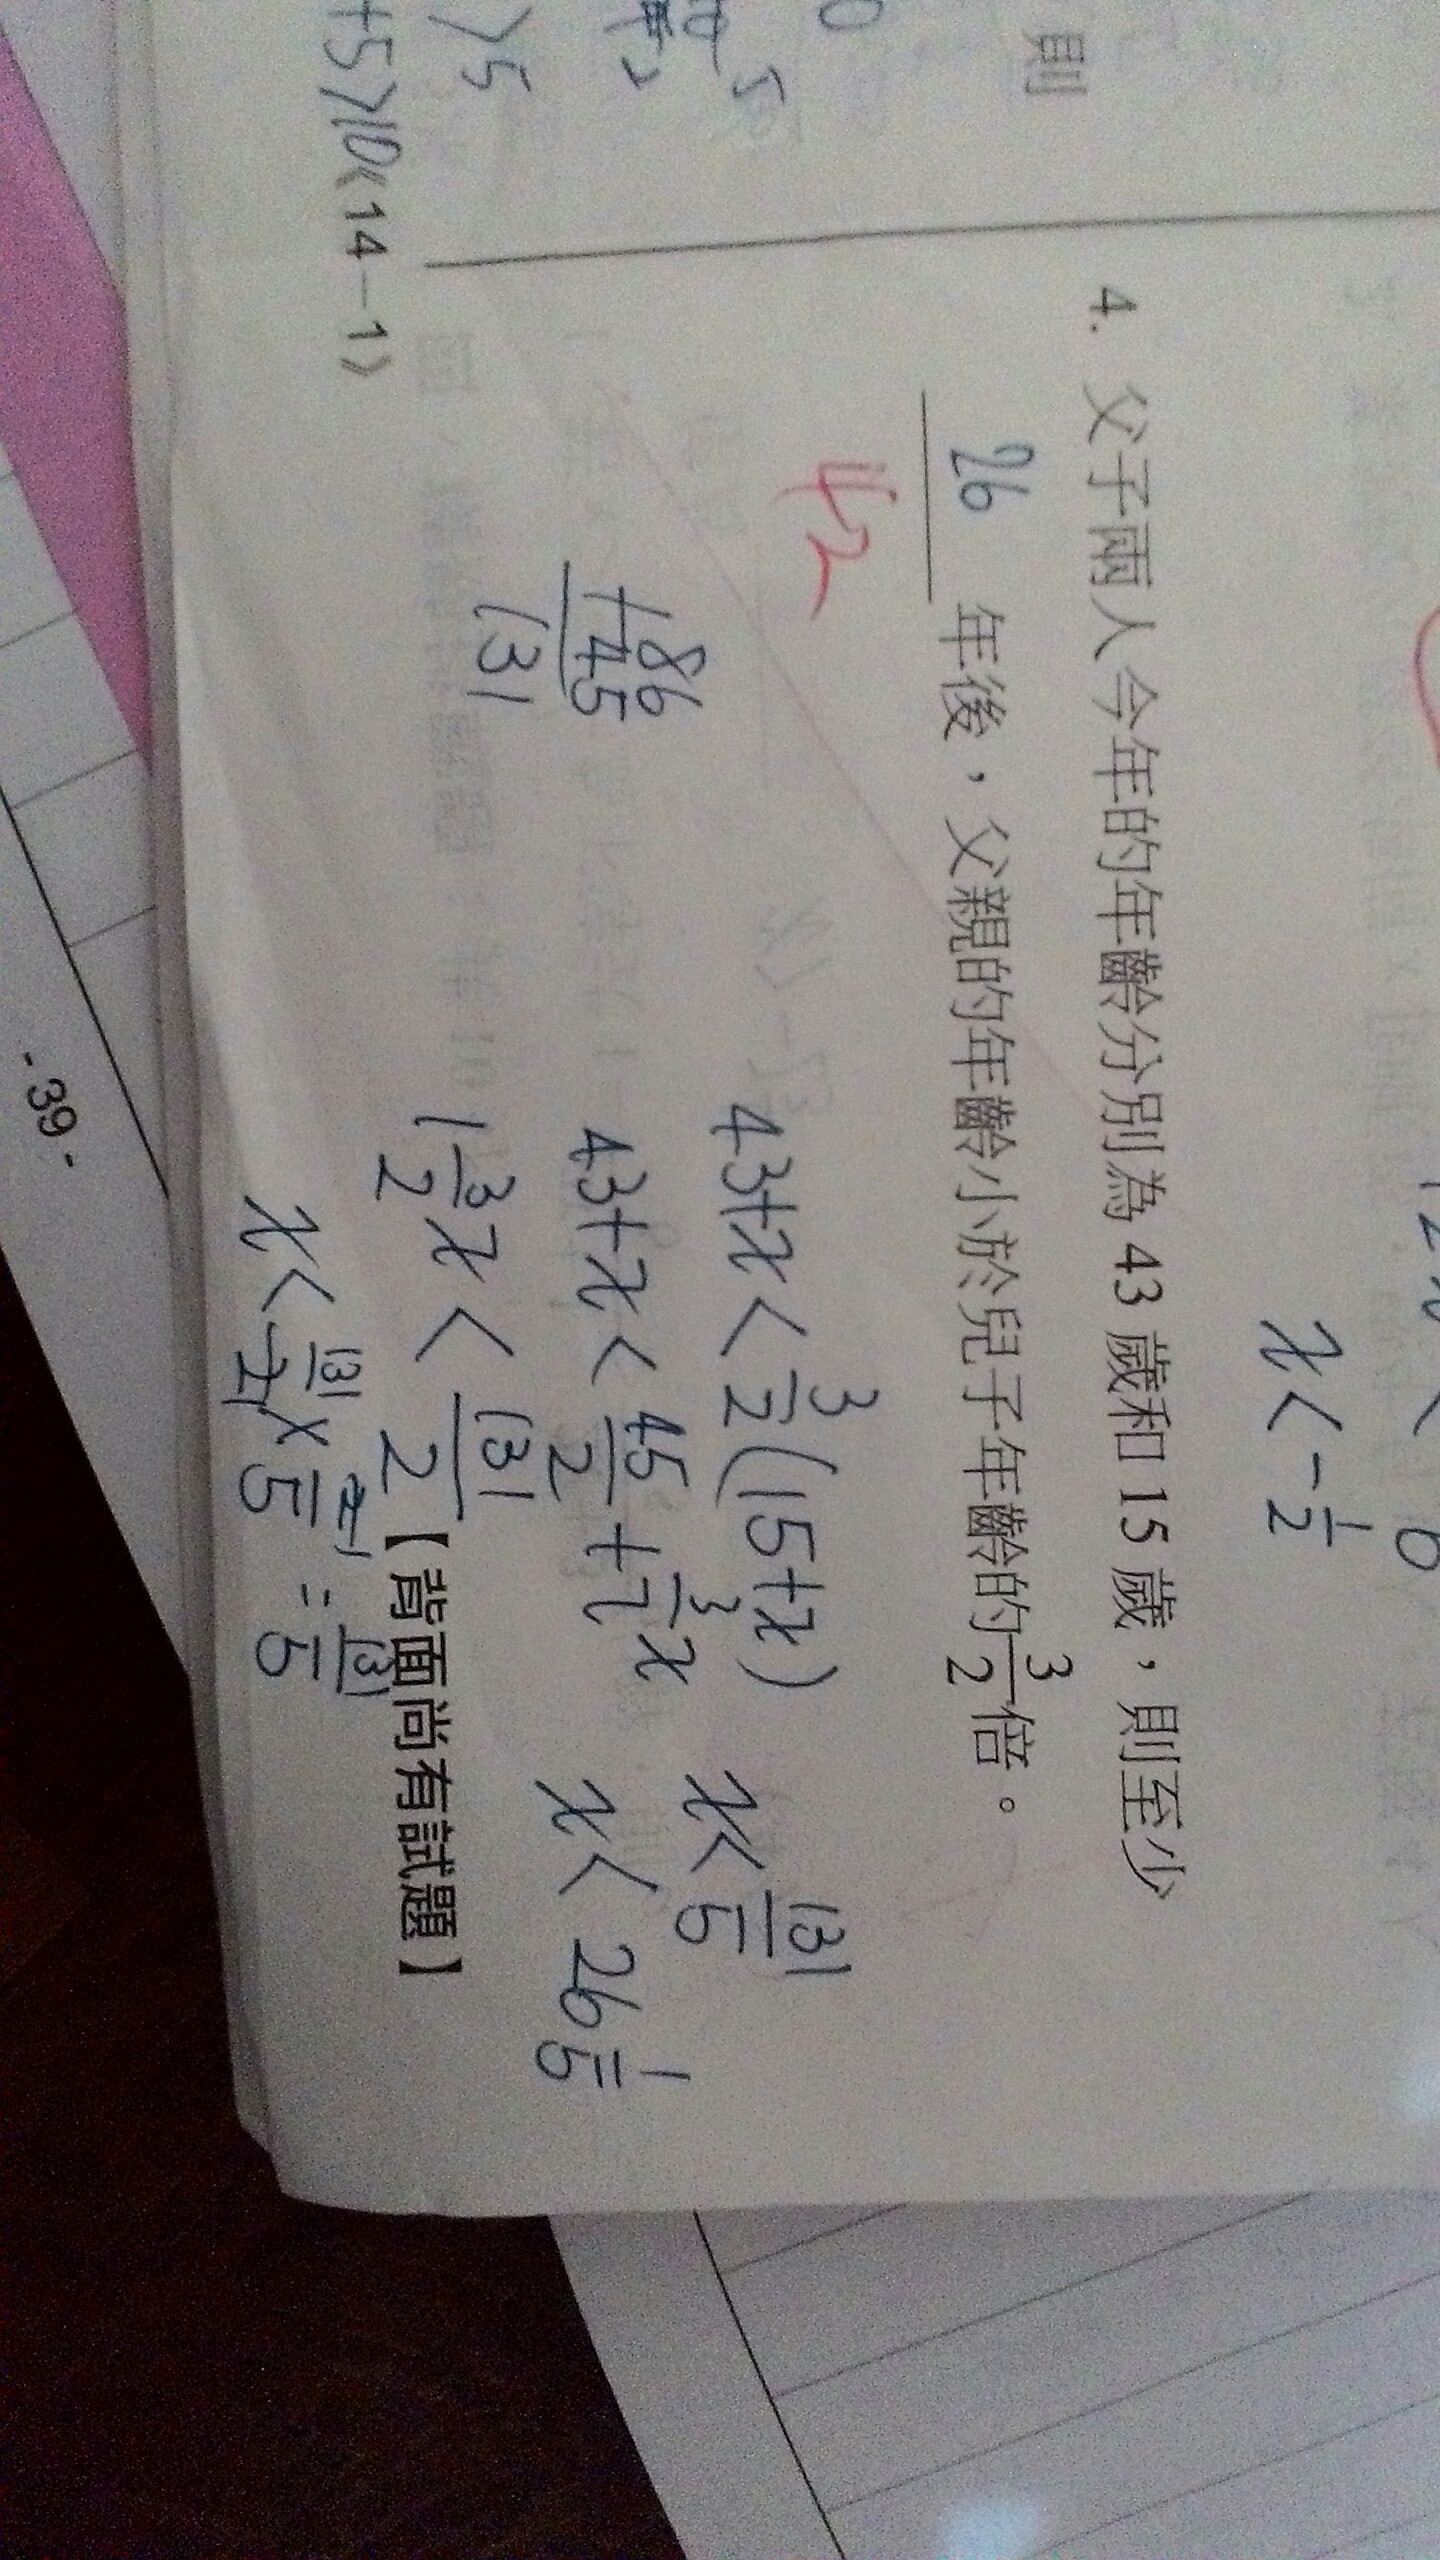 則
0
5
>5
+5>10
《14-1》
x<-1/2
4. 父子兩人今年的年齡分別為 43 歲和 15 歲，則至少
26 年後，父親的年齡小於兒子年齡的3/2倍。
42
43+x<3/2(15+x)
43+x<45/2+3/2x
1 3/2x<131/2
x<131/2×2/5=131/5
x<131/5
x<26 1/5
86
+45
131
【背面尚有試題】
-39-